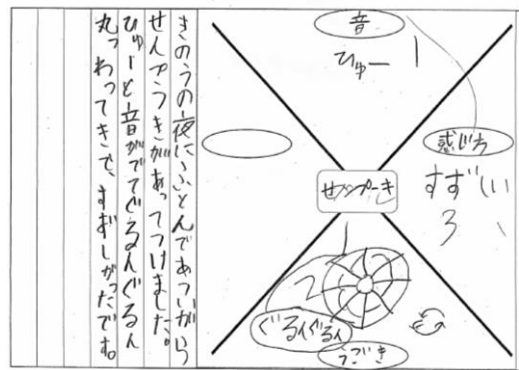 音
ひゅー
感じ方
すずしい
ろ
せんぷーき
ぐるんぐるん
うごき
きのうの夜に、ふとんであついがら
せんぷうきがあってつけました。
ひゅーと音がでてぐるんぐるん
丸っわってきで、すずしがったです。